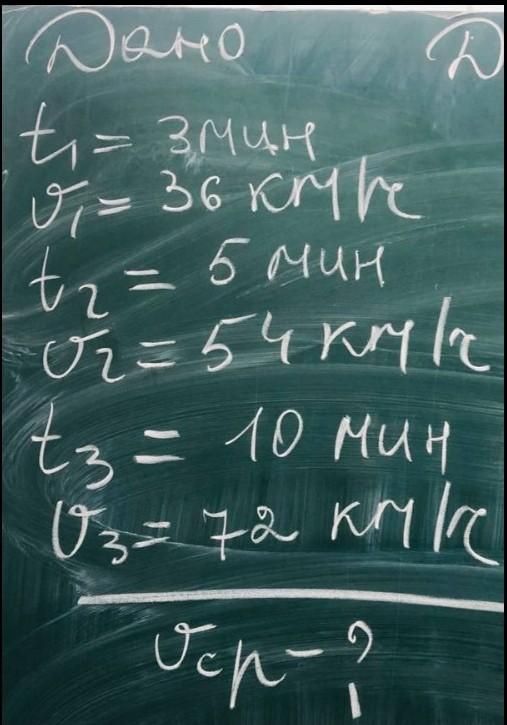 Дано Д
t₁ = 3 мин
υ₁ = 36 км/ч
t₂ = 5 мин
υ₂ = 54 км/ч
t₃ = 10 мин
υ₃ = 72 км/ч
υср - ?